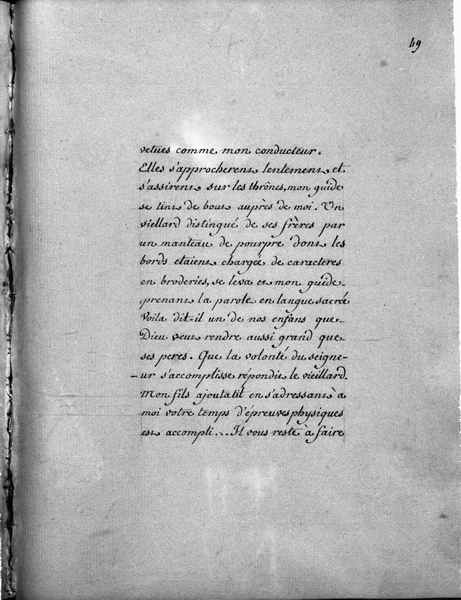 49
vetues comme mon conducteur.
Elles s'approcherent lentement et
s'assirent sur les thrônes, mon guide
se tint de bout auprès de moi. Un
viellard distingué de ses frères par
un manteau de pourpre dont les
bords etaient chargée de caracteres
en broderies, se leva et mon guide
prenant la parole en langue sacrée
Voila dit-il un de nos enfans que
Dieu veut rendre aussi grand que
ses peres. Que la volonté du seigne-
ur s'accomplisse répondit le vieillard.
Mon fils ajoutatil en s'adressant a
moi votre temps d'épreuves physiques
est accompli... Il vous reste à faire